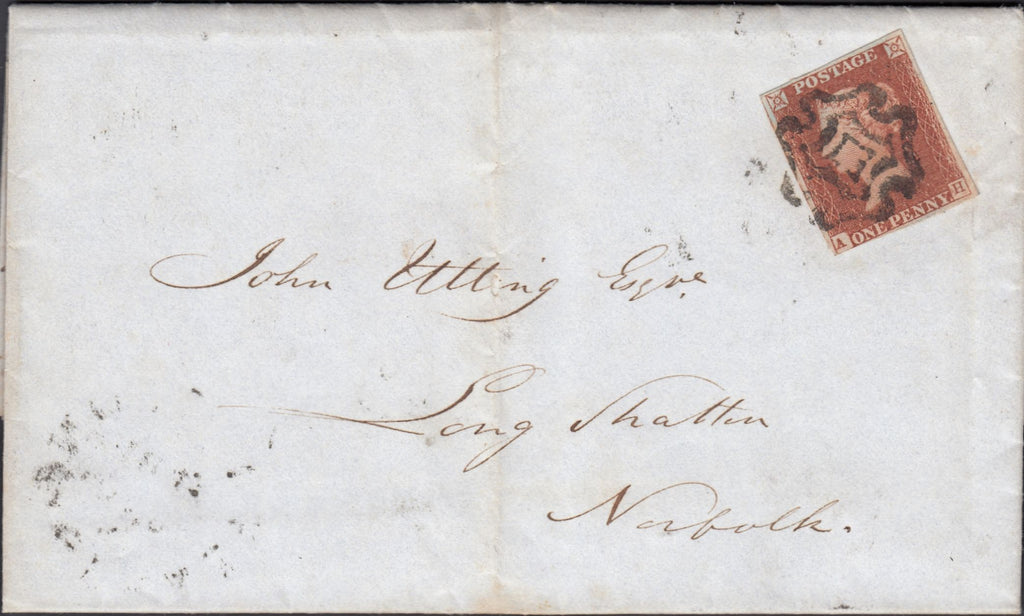 POSTAGE
A ONE PENNY H
John Utting Esqre.
Long Stratton
Norfolk.